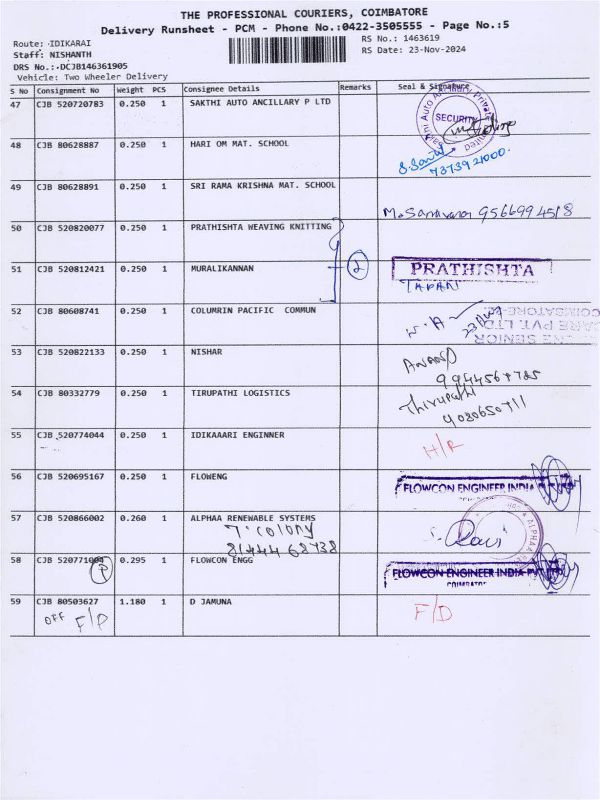 THE PROFESSIONAL COURIERS, COIMBATORE
Delivery Runsheet - PCM - Phone No.:0422-3505555 - Page No.:5
Route: IDIKARAI
RS No.: 1463619
Staff: NISHANTH
RS Date: 23-Nov-2024
DRS No.:-DCJB146361905
Vehicle: Two Wheeler Delivery
S No Consignment No Weight PCS Consignee Details Remarks Seal & Signature
47 CJB 520720783 0.250 1 SAKTHI AUTO ANCILLARY P LTD
SECURITY
48 CJB 80628887 0.250 1 HARI OM MAT. SCHOOL
7373921000.
49 CJB 80628891 0.250 1 SRI RAMA KRISHNA MAT. SCHOOL
9566994518
50 CJB 520820077 0.250 1 PRATHISHTA WEAVING KNITTING
51 CJB 520812421 0.250 1 MURALIKANNAN
2
PRATHISHTA
52 CJB 80608741 0.250 1 COLUMRIN PACIFIC COMMUN
53 CJB 520822133 0.250 1 NISHAR
ANAND
54 CJB 80332779 0.250 1 TIRUPATHI LOGISTICS
Thirupathi
55 CJB 520774044 0.250 1 IDIKAAARI ENGINNER
H/R
56 CJB 520695167 0.250 1 FLOWENG
FLOWCON ENGINEER INDIA
57 CJB 520866002 0.260 1 ALPHAA RENEWABLE SYSTEMS
T. Colony
8144468738
Ravi
58 CJB 520771004 0.295 1 FLOWCON ENGG
P
FLOWCON ENGINEER INDIA PVT LTD
59 CJB 80503627 1.180 1 D JAMUNA
OFF F/P
F/D